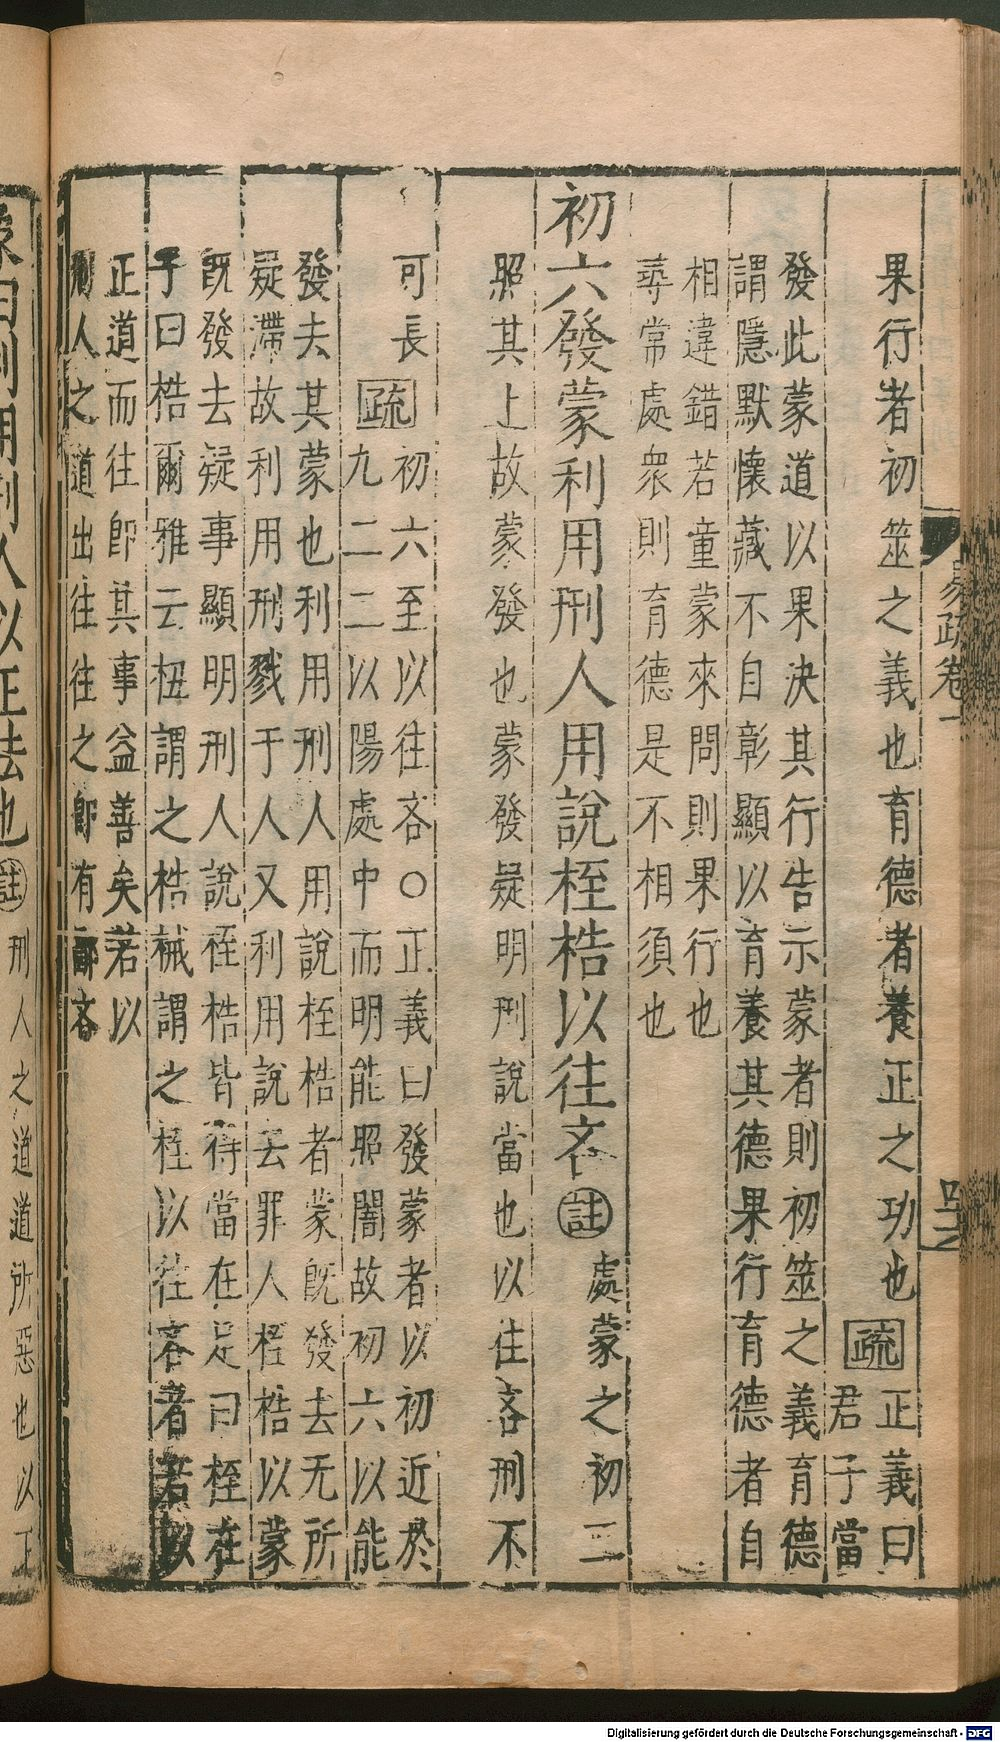 易疏卷一
果行者初筮之義也育德者養正之功也疏正義曰
君子當
發此蒙道以果決其行告示蒙者則初筮之義育德
謂隱默懷藏不自彰顯以育養其德果行育德者自
相違錯若童蒙來問則果行也
尋常處衆則育德是不相須也
初六發蒙利用刑人用說桎梏以往吝註處蒙之初二
照其上故蒙發也蒙發疑明刑說當也以往吝刑不
可長疏初六至以往吝○正義曰發蒙者以初近於
九二二以陽處中而明能照闇故初六以能
發去其蒙也利用刑人用說桎梏者蒙旣發去无所
疑滯故利用刑戮于人又利用說去罪人桎梏以蒙
旣發去疑事顯明刑人說桎梏皆得當在足曰桎在
手曰梏爾雅云杻謂之梏械謂之桎以往吝者若以
正道而往即其事益善矣若以
刑人之道出往往之即有鄙吝
象曰利用刑人以正法也註刑人之道道所惡也以正
Digitalisierung gefördert durch die Deutsche Forschungsgemeinschaft - DFG